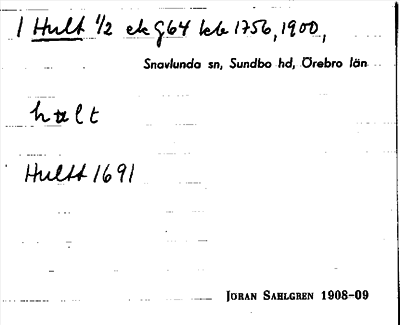 1 Hult 1/2 ek G64 kb 1756, 1900,
Snavlunda sn, Sundbo hd, Örebro län
hult
Hultt 1691
JÖRAN SAHLGREN 1908-09